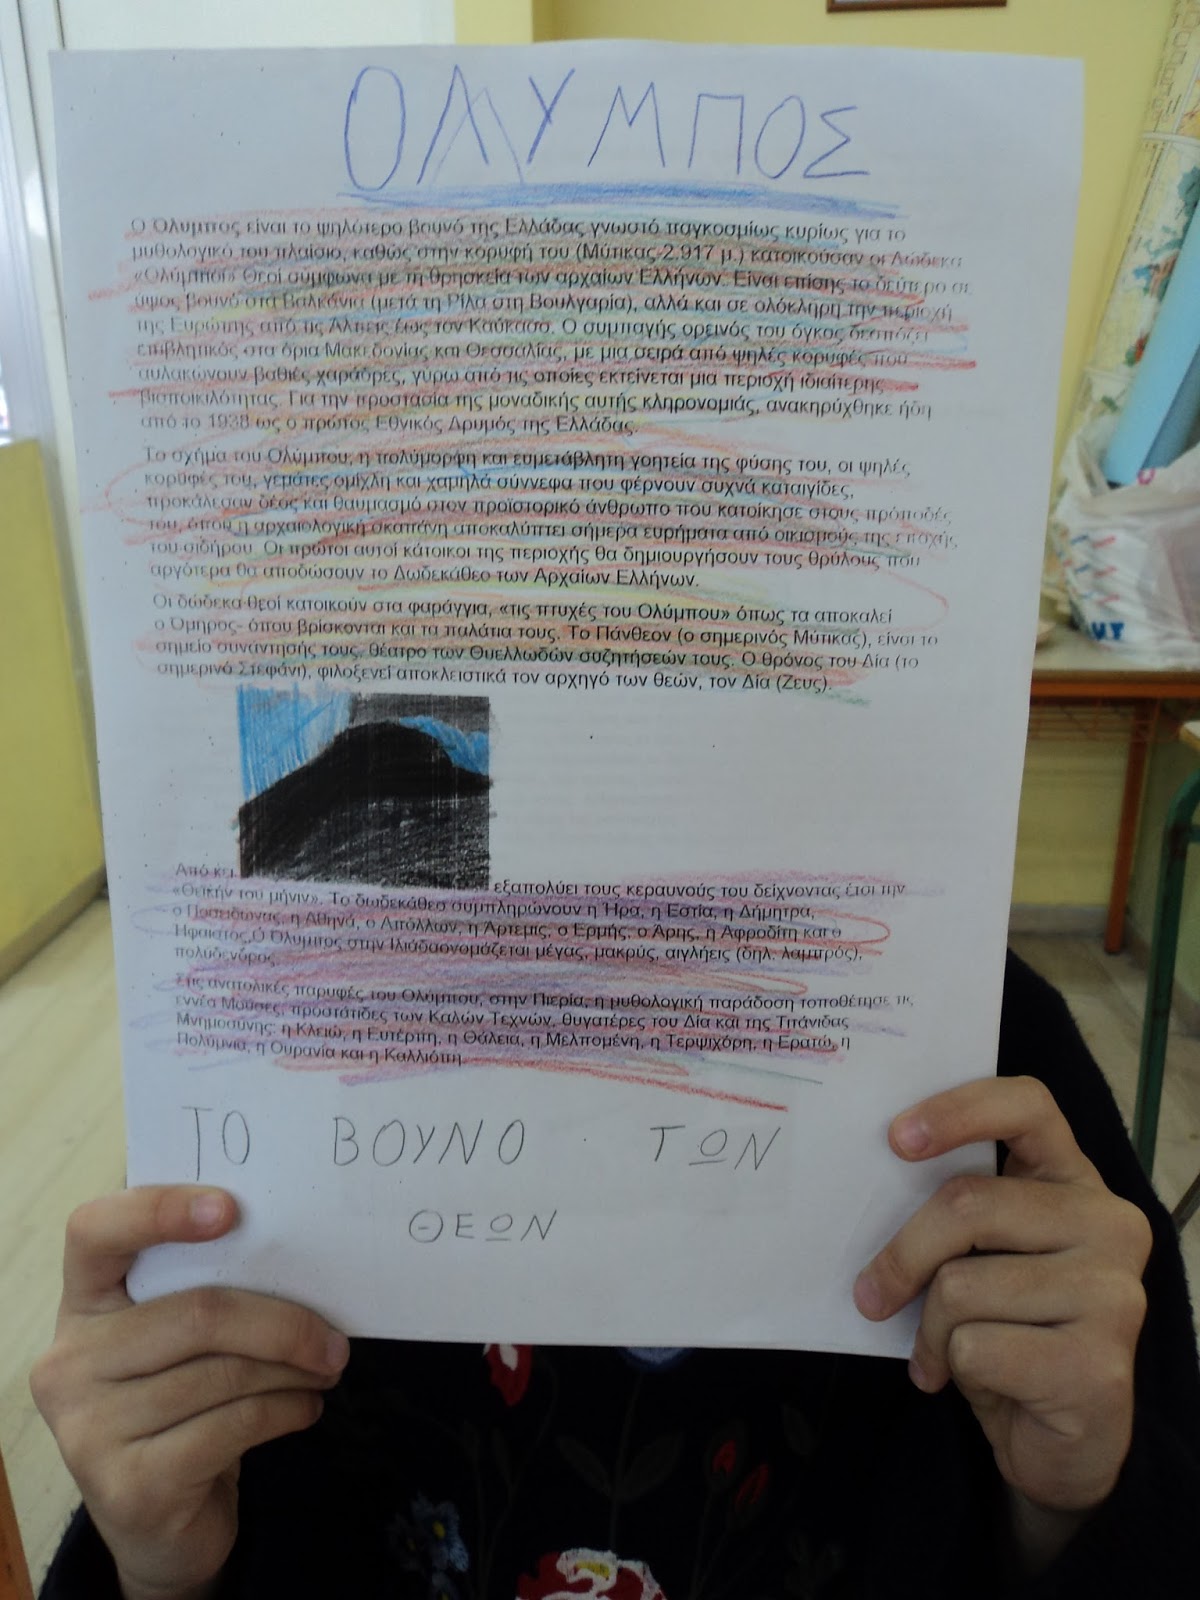 ΟΛΥΜΠΟΣ
Ο Όλυμπος είναι το ψηλότερο βουνό της Ελλάδας γνωστό παγκοσμίως κυρίως για το
μυθολογικό του πλαίσιο, καθώς στην κορυφή του (Μύτικας-2.917 μ.) κατοικούσαν οι Δώδεκα
«Ολύμπιοι» Θεοί σύμφωνα με τη θρησκεία των αρχαίων Ελλήνων. Είναι επίσης το δεύτερο σε
ύψος βουνό στα Βαλκάνια (μετά τη Ρίλα στη Βουλγαρία), αλλά και σε ολόκληρη την περιοχή
της Ευρώπης από τις Άλπεις έως τον Καύκασο. Ο συμπαγής ορεινός του όγκος δεσπόζει
επιβλητικός στα όρια Μακεδονίας και Θεσσαλίας, με μια σειρά από ψηλές κορυφές που
αυλακώνουν βαθιές χαράδρες, γύρω από τις οποίες εκτείνεται μια περιοχή ιδιαίτερης
βιοποικιλότητας. Για την προστασία της μοναδικής αυτής κληρονομιάς, ανακηρύχθηκε ήδη
από το 1938 ως ο πρώτος Εθνικός Δρυμός της Ελλάδας.
Το σχήμα του Ολύμπου, η πολύμορφη και ευμετάβλητη γοητεία της φύσης του, οι ψηλές
κορυφές του, γεμάτες ομίχλη και χαμηλά σύννεφα που φέρνουν συχνά καταιγίδες,
προκάλεσαν δέος και θαυμασμό στον προϊστορικό άνθρωπο που κατοίκησε στους πρόποδές
του, όπου η αρχαιολογική σκαπάνη αποκαλύπτει σήμερα ευρήματα από οικισμούς της εποχής
του σιδήρου. Οι πρώτοι αυτοί κάτοικοι της περιοχής θα δημιουργήσουν τους θρύλους που
αργότερα θα αποδώσουν το Δωδεκάθεο των Αρχαίων Ελλήνων.
Οι δώδεκα θεοί κατοικούν στα φαράγγια, «τις πτυχές του Ολύμπου» όπως τα αποκαλεί
ο Όμηρος- όπου βρίσκονται και τα παλάτια τους. Το Πάνθεον (ο σημερινός Μύτικας), είναι το
σημείο συνάντησής τους, θέατρο των Θυελλωδών συζητήσεών τους. Ο θρόνος του Δία (το
σημερινό Στεφάνι), φιλοξενεί αποκλειστικά τον αρχηγό των θεών, τον Δία (Ζευς).
Από κει εξαπολύει τους κεραυνούς του δείχνοντας έτσι την
«Θεϊκήν του μήνιν». Το δωδεκάθεο συμπληρώνουν η Ήρα, η Εστία, η Δήμητρα,
ο Ποσειδώνας, η Αθηνά, ο Απόλλων, η Άρτεμις, ο Ερμής, ο Άρης, η Αφροδίτη και ο
Ήφαιστος.Ο Όλυμπος στην Ιλιάδαονομάζεται μέγας, μακρύς, αιγλήεις (δηλ. λαμπρός),
πολύδενδρος.
Στις ανατολικές παρυφές του Ολύμπου, στην Πιερία, η μυθολογική παράδοση τοποθέτησε τις
εννέα Μούσες, προστάτιδες των Καλών Τεχνών, θυγατέρες του Δία και της Τιτάνιδας
Μνημοσύνης: η Κλειώ, η Ευτέρπη, η Θάλεια, η Μελπομένη, η Τερψιχόρη, η Ερατώ, η
Πολύμνια, η Ουρανία και η Καλλιόπη.
ΤΟ ΒΟΥΝΟ ΤΩΝ
ΘΕΩΝ